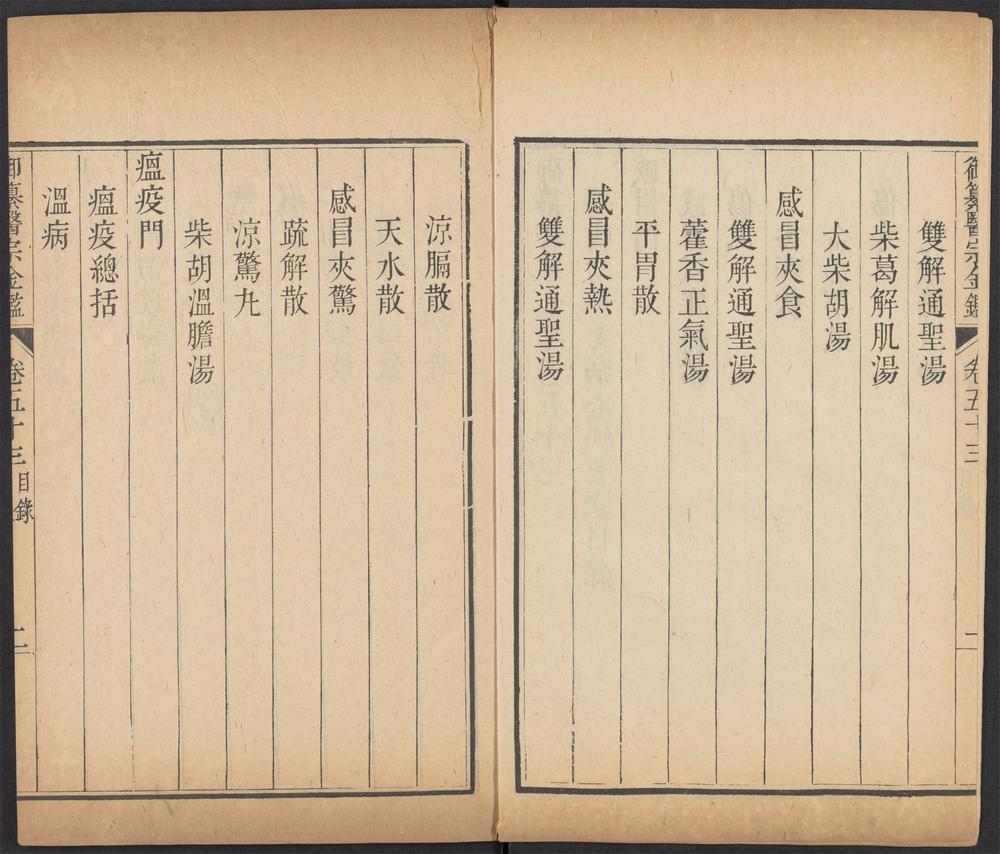 御纂醫宗金鑑 卷五十三 一
雙解通聖湯
柴葛解肌湯
大柴胡湯
感冒夾食
雙解通聖湯
藿香正氣湯
平胃散
感冒夾熱
雙解通聖湯
涼膈散
天水散
感冒夾驚
疏解散
涼驚丸
柴胡溫膽湯
瘟疫門
瘟疫總括
溫病
御纂醫宗金鑑 卷五十三 目錄 二